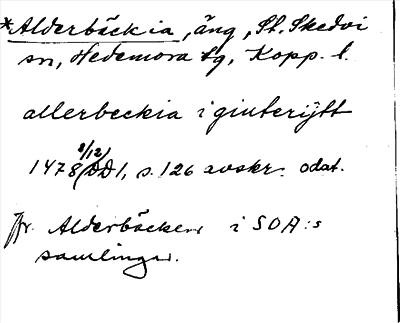 *Alderbäckia, äng, St. Skedvi
sn, Hedemora tg, Kopp. l.
allerbeckia i giuterijtt
1478 8/12 (DD 1, s. 126 avskr. odat.
Jfr. Alderbäcken i SOA:s
samlingar.